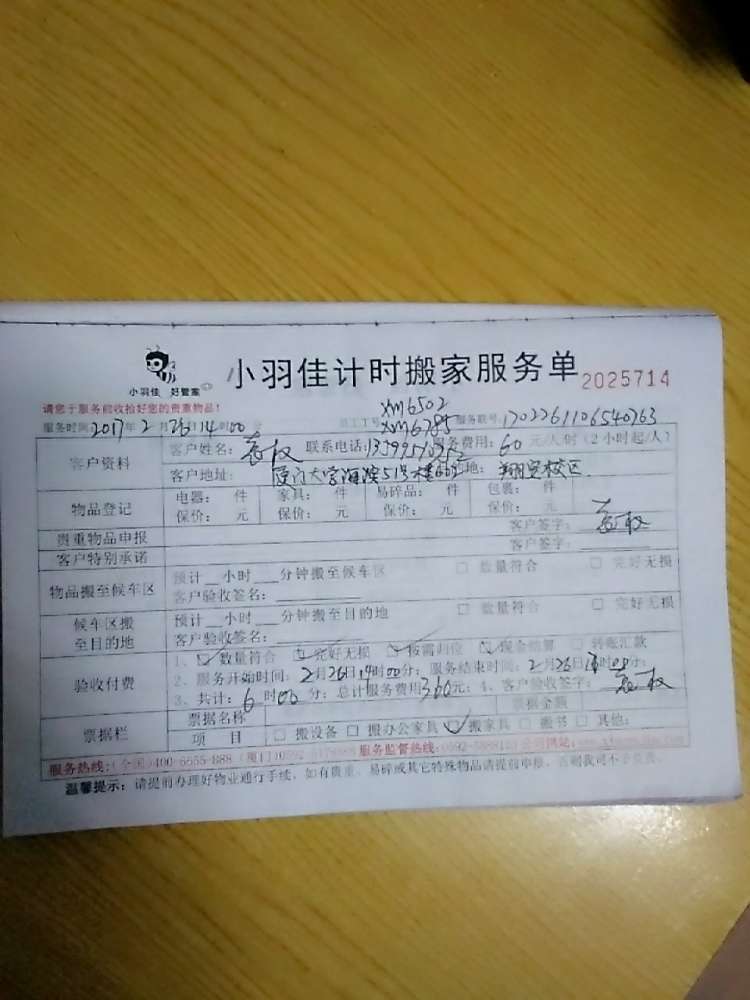 小羽佳 好管家
小羽佳计时搬家服务单 2025714
请您于服务前收拾好您的贵重物品！
XM6502
服务时间2017年2月26日14时00分 员工工号 XM6785 服务联号:
客户资料
客户姓名: 联系电话: 服务费用: 60 元/人/时（2小时起/人）
客户地址: 厦门大学海滨51号楼 地: 翔安校区
物品登记
电器： 件 家具： 件 易碎品： 件 包裹： 件
保价： 元 保价： 元 保价： 元 保价： 元
贵重物品申报 客户签字：
客户特别承诺 客户签字：
物品搬至候车区
预计___小时___分钟搬至候车区 □ 数量符合 □ 完好无损
客户验收签名：
候车区搬至目的地
预计___小时___分钟搬至目的地 □ 数量符合 □ 完好无损
客户验收签名：
验收付费
1、☑ 数量符合 ☑ 完好无损 ☑ 按需归位 ☑ 现金结算 □ 转账汇款
2、服务开始时间：2月26日14时00分；服务结束时间：2月26日 时00分；
3、共计：6时00分；总计服务费用360元；4、客户验收签字：
票据栏
票据名称 票据金额
项 目 □ 搬设备 □ 搬办公家具 ☑ 搬家具 □ 搬书 □ 其他：
服务热线：(全国)400-6555-888 (厦门)0592- 服务监督热线： 公司网址：
温馨提示：请提前办理好物业通行手续，如有贵重、易碎或其它特殊物品请提前申报，否则我司不予负责。